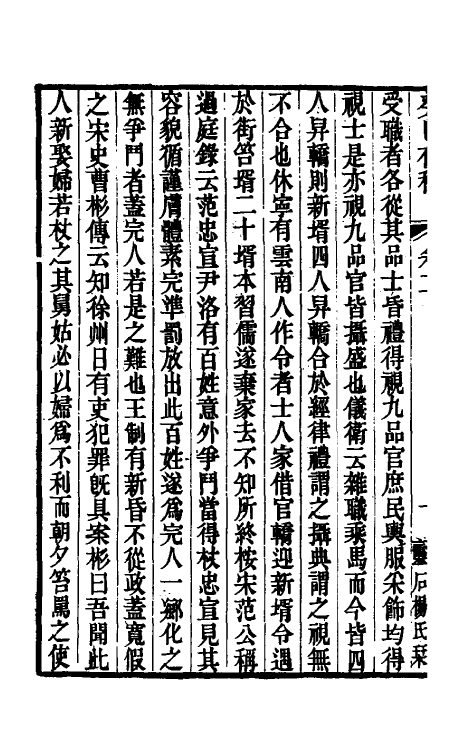 受職者各從其品士昏禮得視九品官庶民輿服采飾均得
視士是亦視九品官皆攝盛也儀衛云雜職乘馬而今皆四
人舁轎則新壻四人舁轎合於經律禮謂之攝典謂之視無
不合也休寧有雲南人作令者士人家借官轎迎新壻令遇
於街笞壻二十壻本習儒遂棄家去不知所終桉宋范公稱
過庭錄云范忠宣尹洛有百姓意外爭鬥當得杖忠宣見其
容貌循謹膚體素完準罰放出此百姓遂爲完人一鄉化之
無爭鬥者蓋完人若是之難也王制有新昏不從政蓋寬假
之宋史曹彬傳云知徐州日有吏犯罪旣具案彬曰吾聞此
人新娶婦若杖之其舅姑必以婦爲不利而朝夕笞罵之使